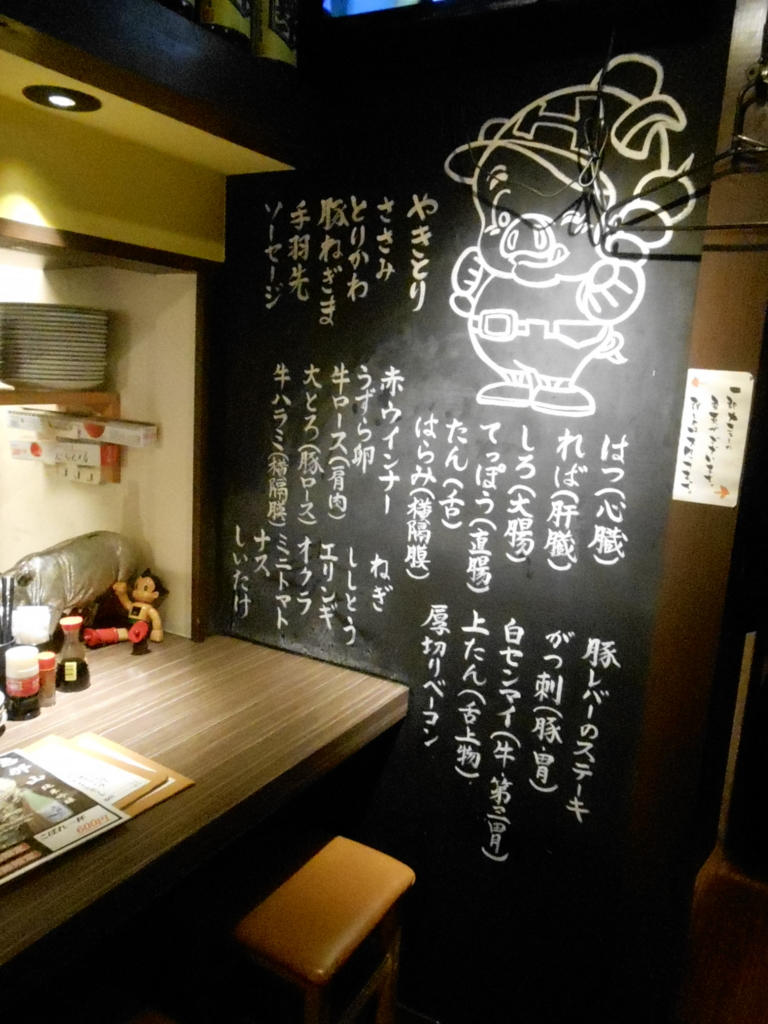 はつ(心臓)
れば(肝臓)
しろ(大腸)
てっぽう(直腸)
たん(舌)
はらみ(横隔膜)
豚レバーのステーキ
がつ刺(豚・胃)
白センマイ(牛・第三胃)
上たん(舌上物)
厚切りベーコン
やきとり
ささみ
とりかわ
豚ねぎま
手羽先
ソーセージ
赤ウインナー
うずら卵
牛ロース(肩肉)
大とろ(豚ロース)
牛ハラミ(横隔膜)
ねぎ
ししとう
エリンギ
オクラ
ミニトマト
ナス
しいたけ
こぼれ一杯
600円